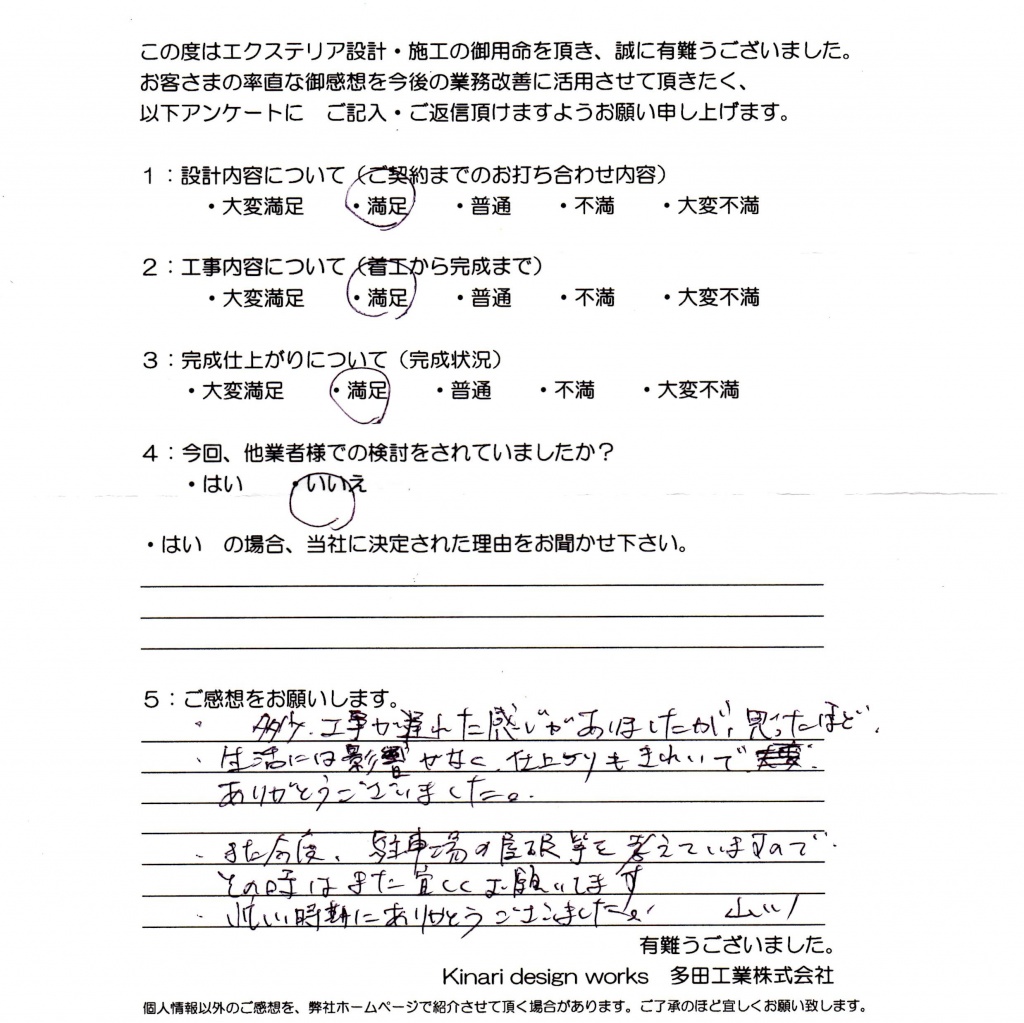 この度はエクステリア設計・施工の御用命を頂き、誠に有難うございました。
お客さまの率直な御感想を今後の業務改善に活用させて頂きたく、
以下アンケートに　ご記入・ご返信頂けますようお願い申し上げます。
1：設計内容について（ご契約までのお打ち合わせ内容）
・大変満足　・満足　・普通　・不満　・大変不満
2：工事内容について（着工から完成まで）
・大変満足　・満足　・普通　・不満　・大変不満
3：完成仕上がりについて（完成状況）
・大変満足　・満足　・普通　・不満　・大変不満
4：今回、他業者様での検討をされていましたか？
・はい　・いいえ
・はい　の場合、当社に決定された理由をお聞かせ下さい。
5：ご感想をお願いします。
・多少、工事が遅れた感じがありましたが、思ったほど、
生活には影響せなく、仕上がりもきれいで
ありがとうございました。
・また今度、駐車場の屋根等を考えていますので
その時はまた宜しくお願いしてます
・忙しい時期にありがとうございました。
有難うございました。
Kinari design works　多田工業株式会社
個人情報以外のご感想を、弊社ホームページで紹介させて頂く場合があります。ご了承のほど宜しくお願い致します。